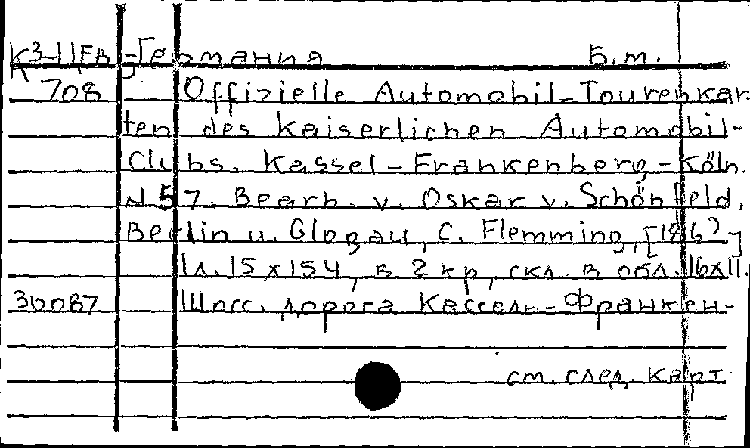 К3-IIEв -Германия Б.м.
708 Offizielle Automobil-Tourenkar
ten des Kaiserlichen Automobil-
Clubs. Kassel-Frankenberg-Köln.
N 57. Bearb. v. Oskar v. Schönfeld.
Berlin u. Glogau, C. Flemming, [186?]
1 л. 15х154, в 2 кр, скл. в обл. 16х11.
30087 Шосс. дорога Кассель-Франкен-
см. след. карт